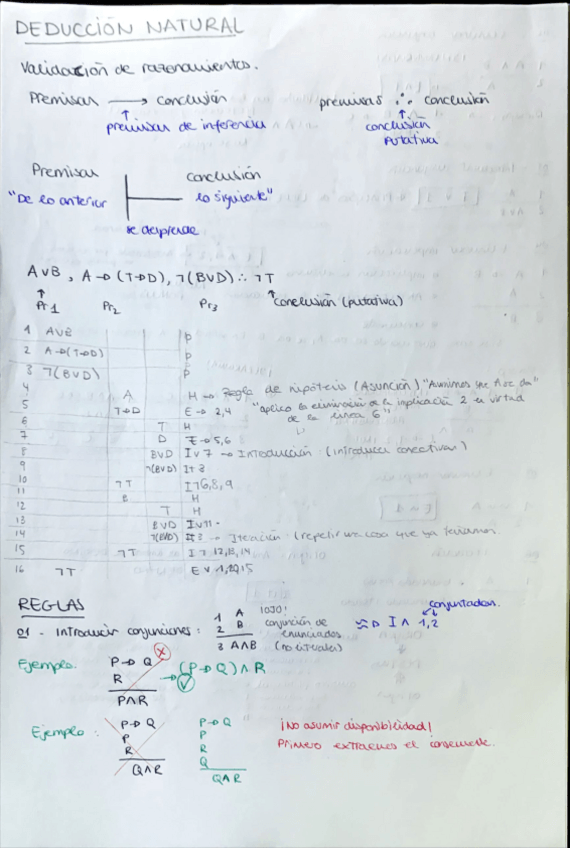 DEDUCCIÓN NATURAL
Validación de razonamientos.
Premisas → conclusión premisas ∴ conclusión
↑ ↑
premisas de inferencia conclusión
putativa
Premisas conclusión
"De lo anterior lo siguiente"
se desprende
A∨B, A→(T→D), ¬(B∨D) ∴ ¬T
↑ ↑ conclusión (putativa)
Pr1 Pr2 Pr3
1 A∨B P
2 A→(T→D) P
3 ¬(B∨D) P
4 A H → Regla de hipótesis (Asunción) "Asumimos que A se da"
5 T→D E→ 2,4 "aplico la eliminación de la implicación 2 en virtud
de la línea 6"
6 T H
7 D E→ 5,6
8 B∨D I∨ 7 → Introducción (introducir conectivas)
9 ¬(B∨D) It 3
10 ¬T I¬ 6,8,9
11 B H
12 T H
13 B∨D I∨ 11
14 ¬(B∨D) It 3 → Iteración (repetir una cosa que ya teníamos
15 ¬T I¬ 12,13,14
16 ¬T E∨ 1,10,15
REGLAS
01 - Introducir conjunciones:
1 A
2 B
3 A∧B
¡OJO!
conjunción de
enunciados
(no literales)
conjuntados.
I∧ 1,2
Ejemplo.
P→Q
R
P∧R
(P→Q)∧R
Ejemplo:
P→Q
P
R
Q∧R
P→Q
P
R
Q
Q∧R
¡No asumir disponibilidad!
Primero extraemos el consecuente.